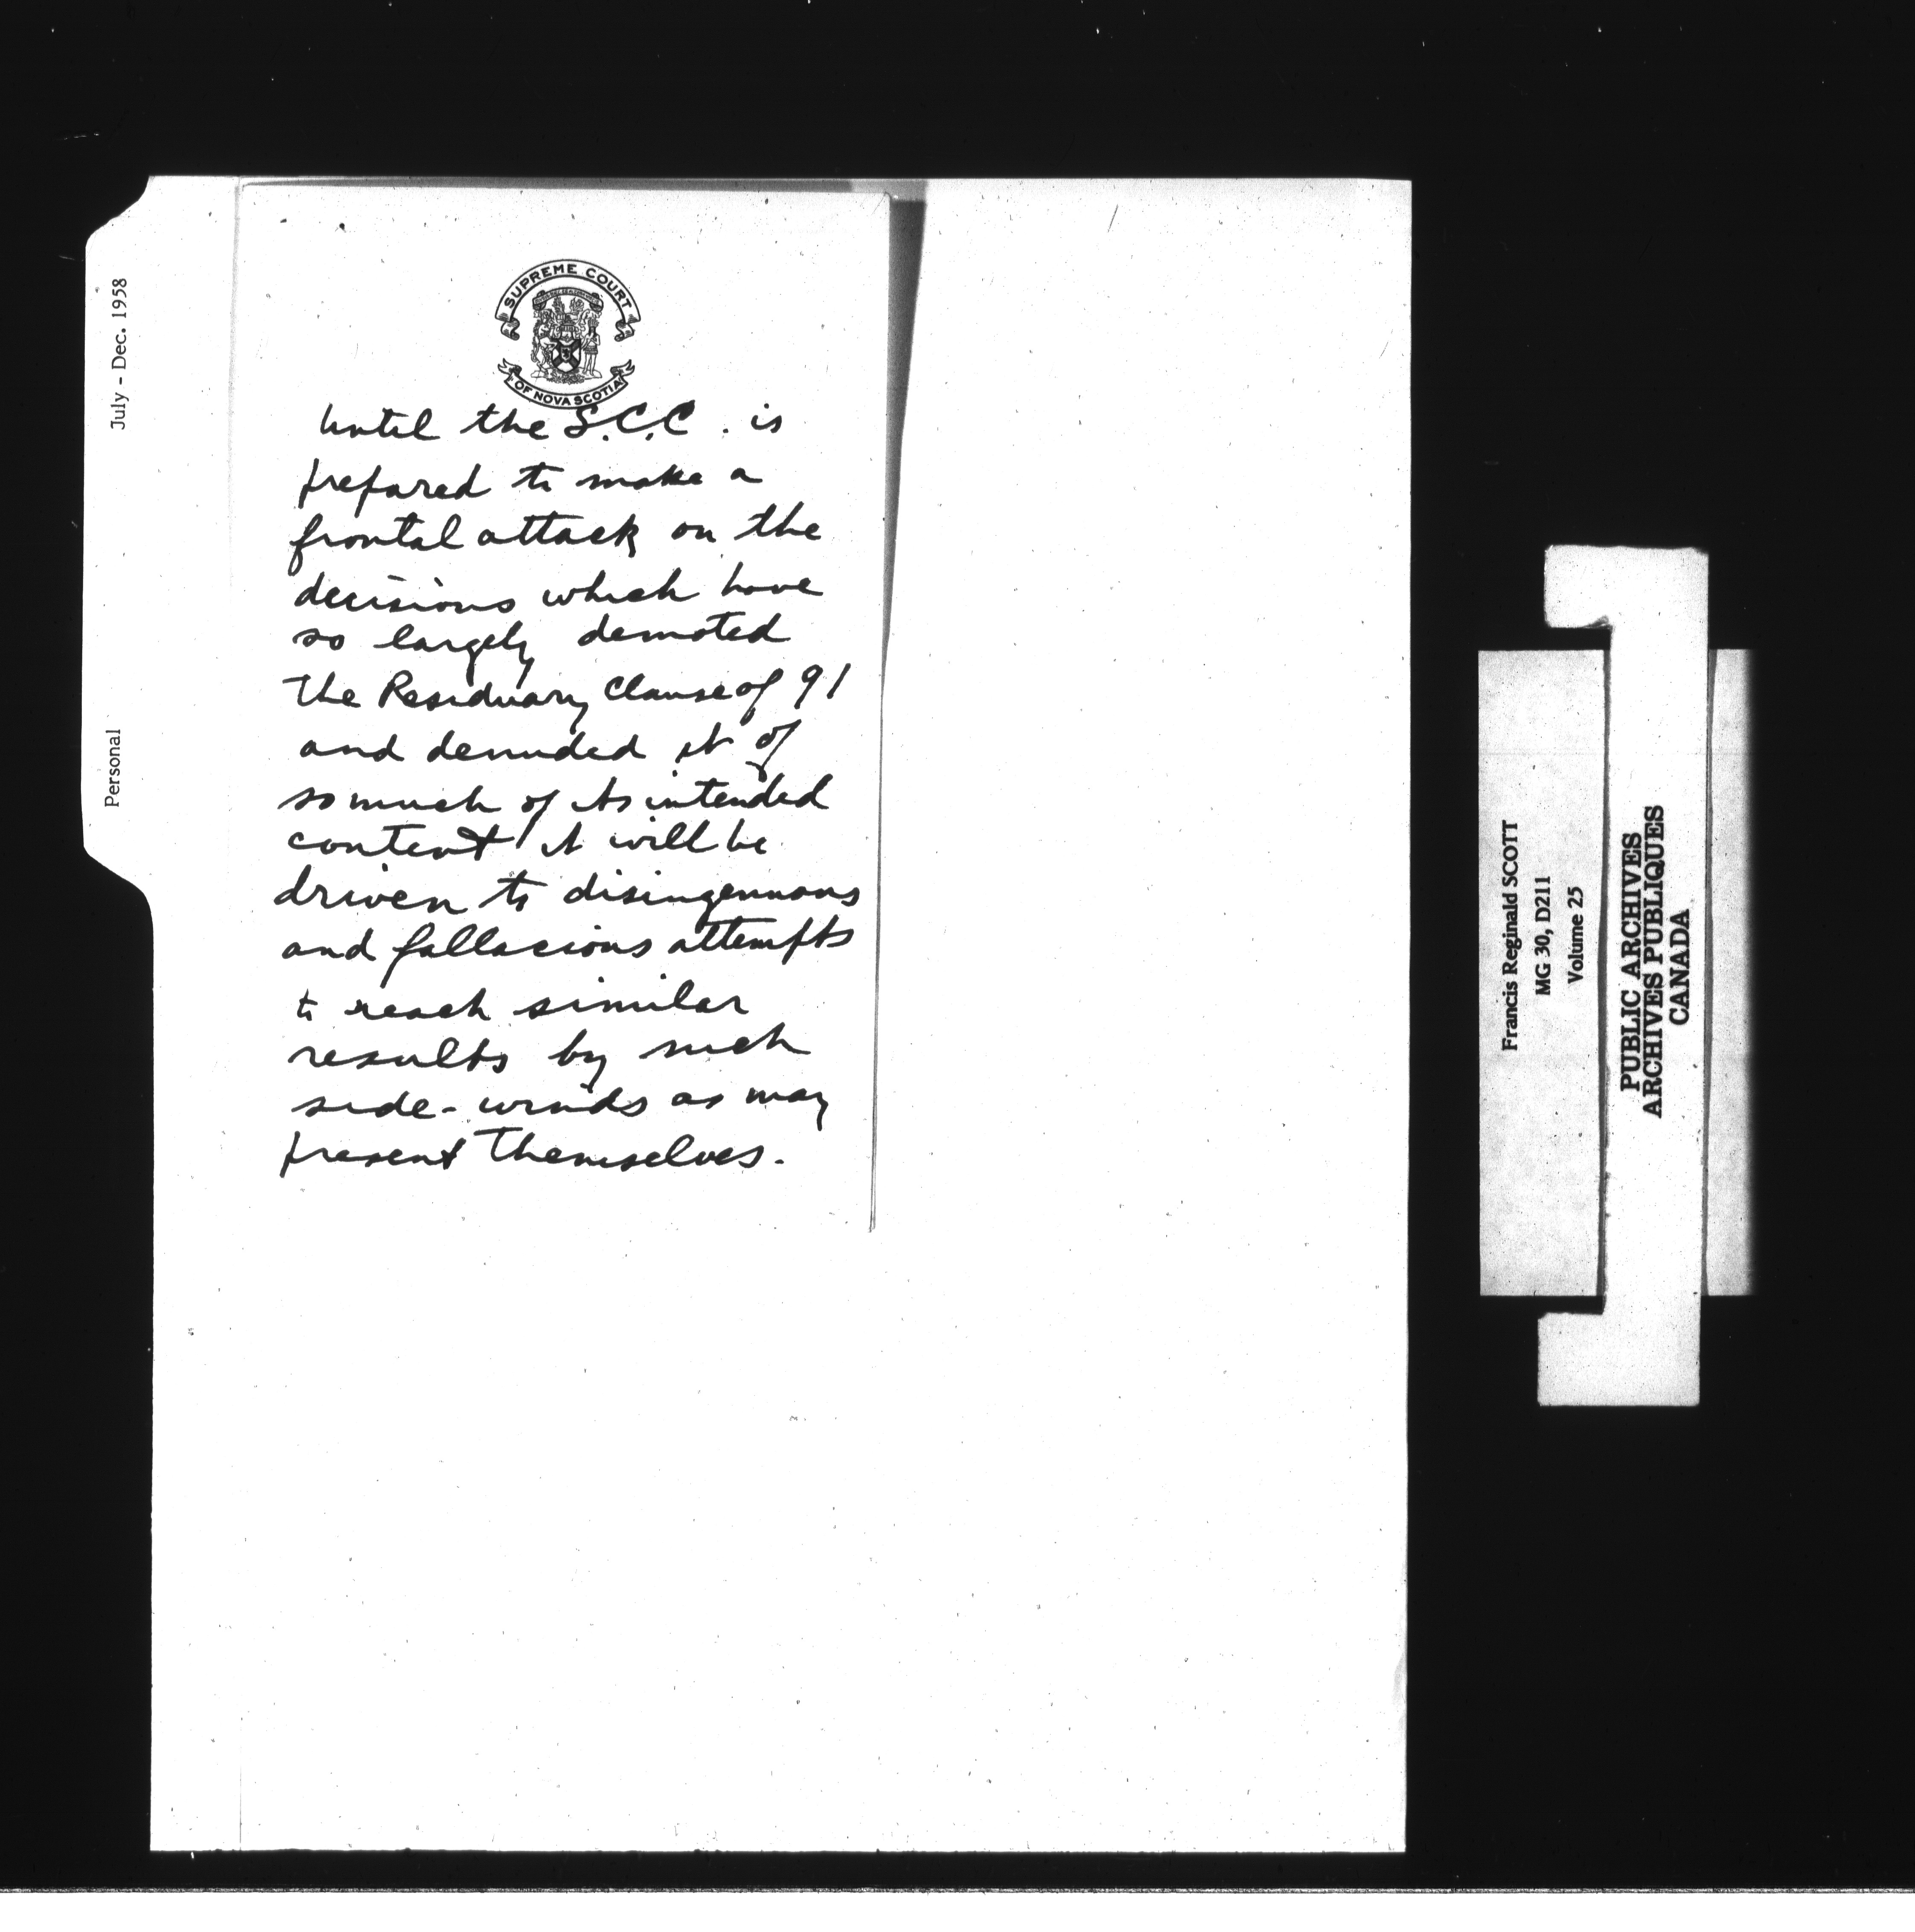 July - Dec. 1958
Personal
SUPREME COURT
OF NOVA SCOTIA
Until the S.C.C. is
prepared to make a
frontal attack on the
decisions which have
so largely demoted
the Residuary Clause of 91
and denuded it of
so much of its intended
content, it will be
driven to disingenuous
and fallacious attempts
to reach similar
results by such
side-winds as may
present themselves.
Francis Reginald SCOTT
MG 30, D211
Volume 25
PUBLIC ARCHIVES
ARCHIVES PUBLIQUES
CANADA